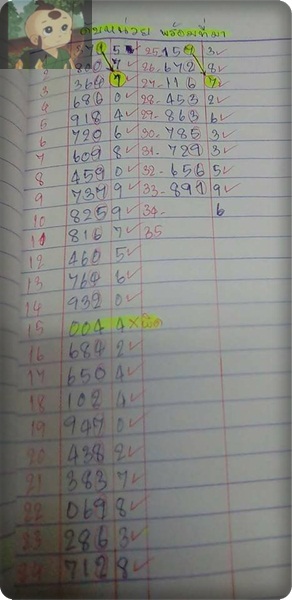 ดับหน่วย พร้อมที่มา
579 5✓ 25 159 3✓
2 800 7✓ 26- 672 8✓
3 364 7✓ 27- 116 7✓
4 686 0✓ 28- 453 2✓
5 918 4✓ 29- 863 6✓
6 720 6✓ 30- 785 3✓
7 609 8✓ 31- 729 3✓
8 459 0✓ 32- 656 5✓
9 737 9✓ 33- 891 9✓
10 825 9✓ 34- 6
11 816 7✓ 35
12 460 5✓
13 764 6✓
14 932 0✓
15 004 4 × ผิด
16 684 2✓
17 650 4✓
18 102 4✓
19 947 0✓
20 438 2✓
21 383 7✓
22 069 8✓
23 286 3✓
24 712 8✓